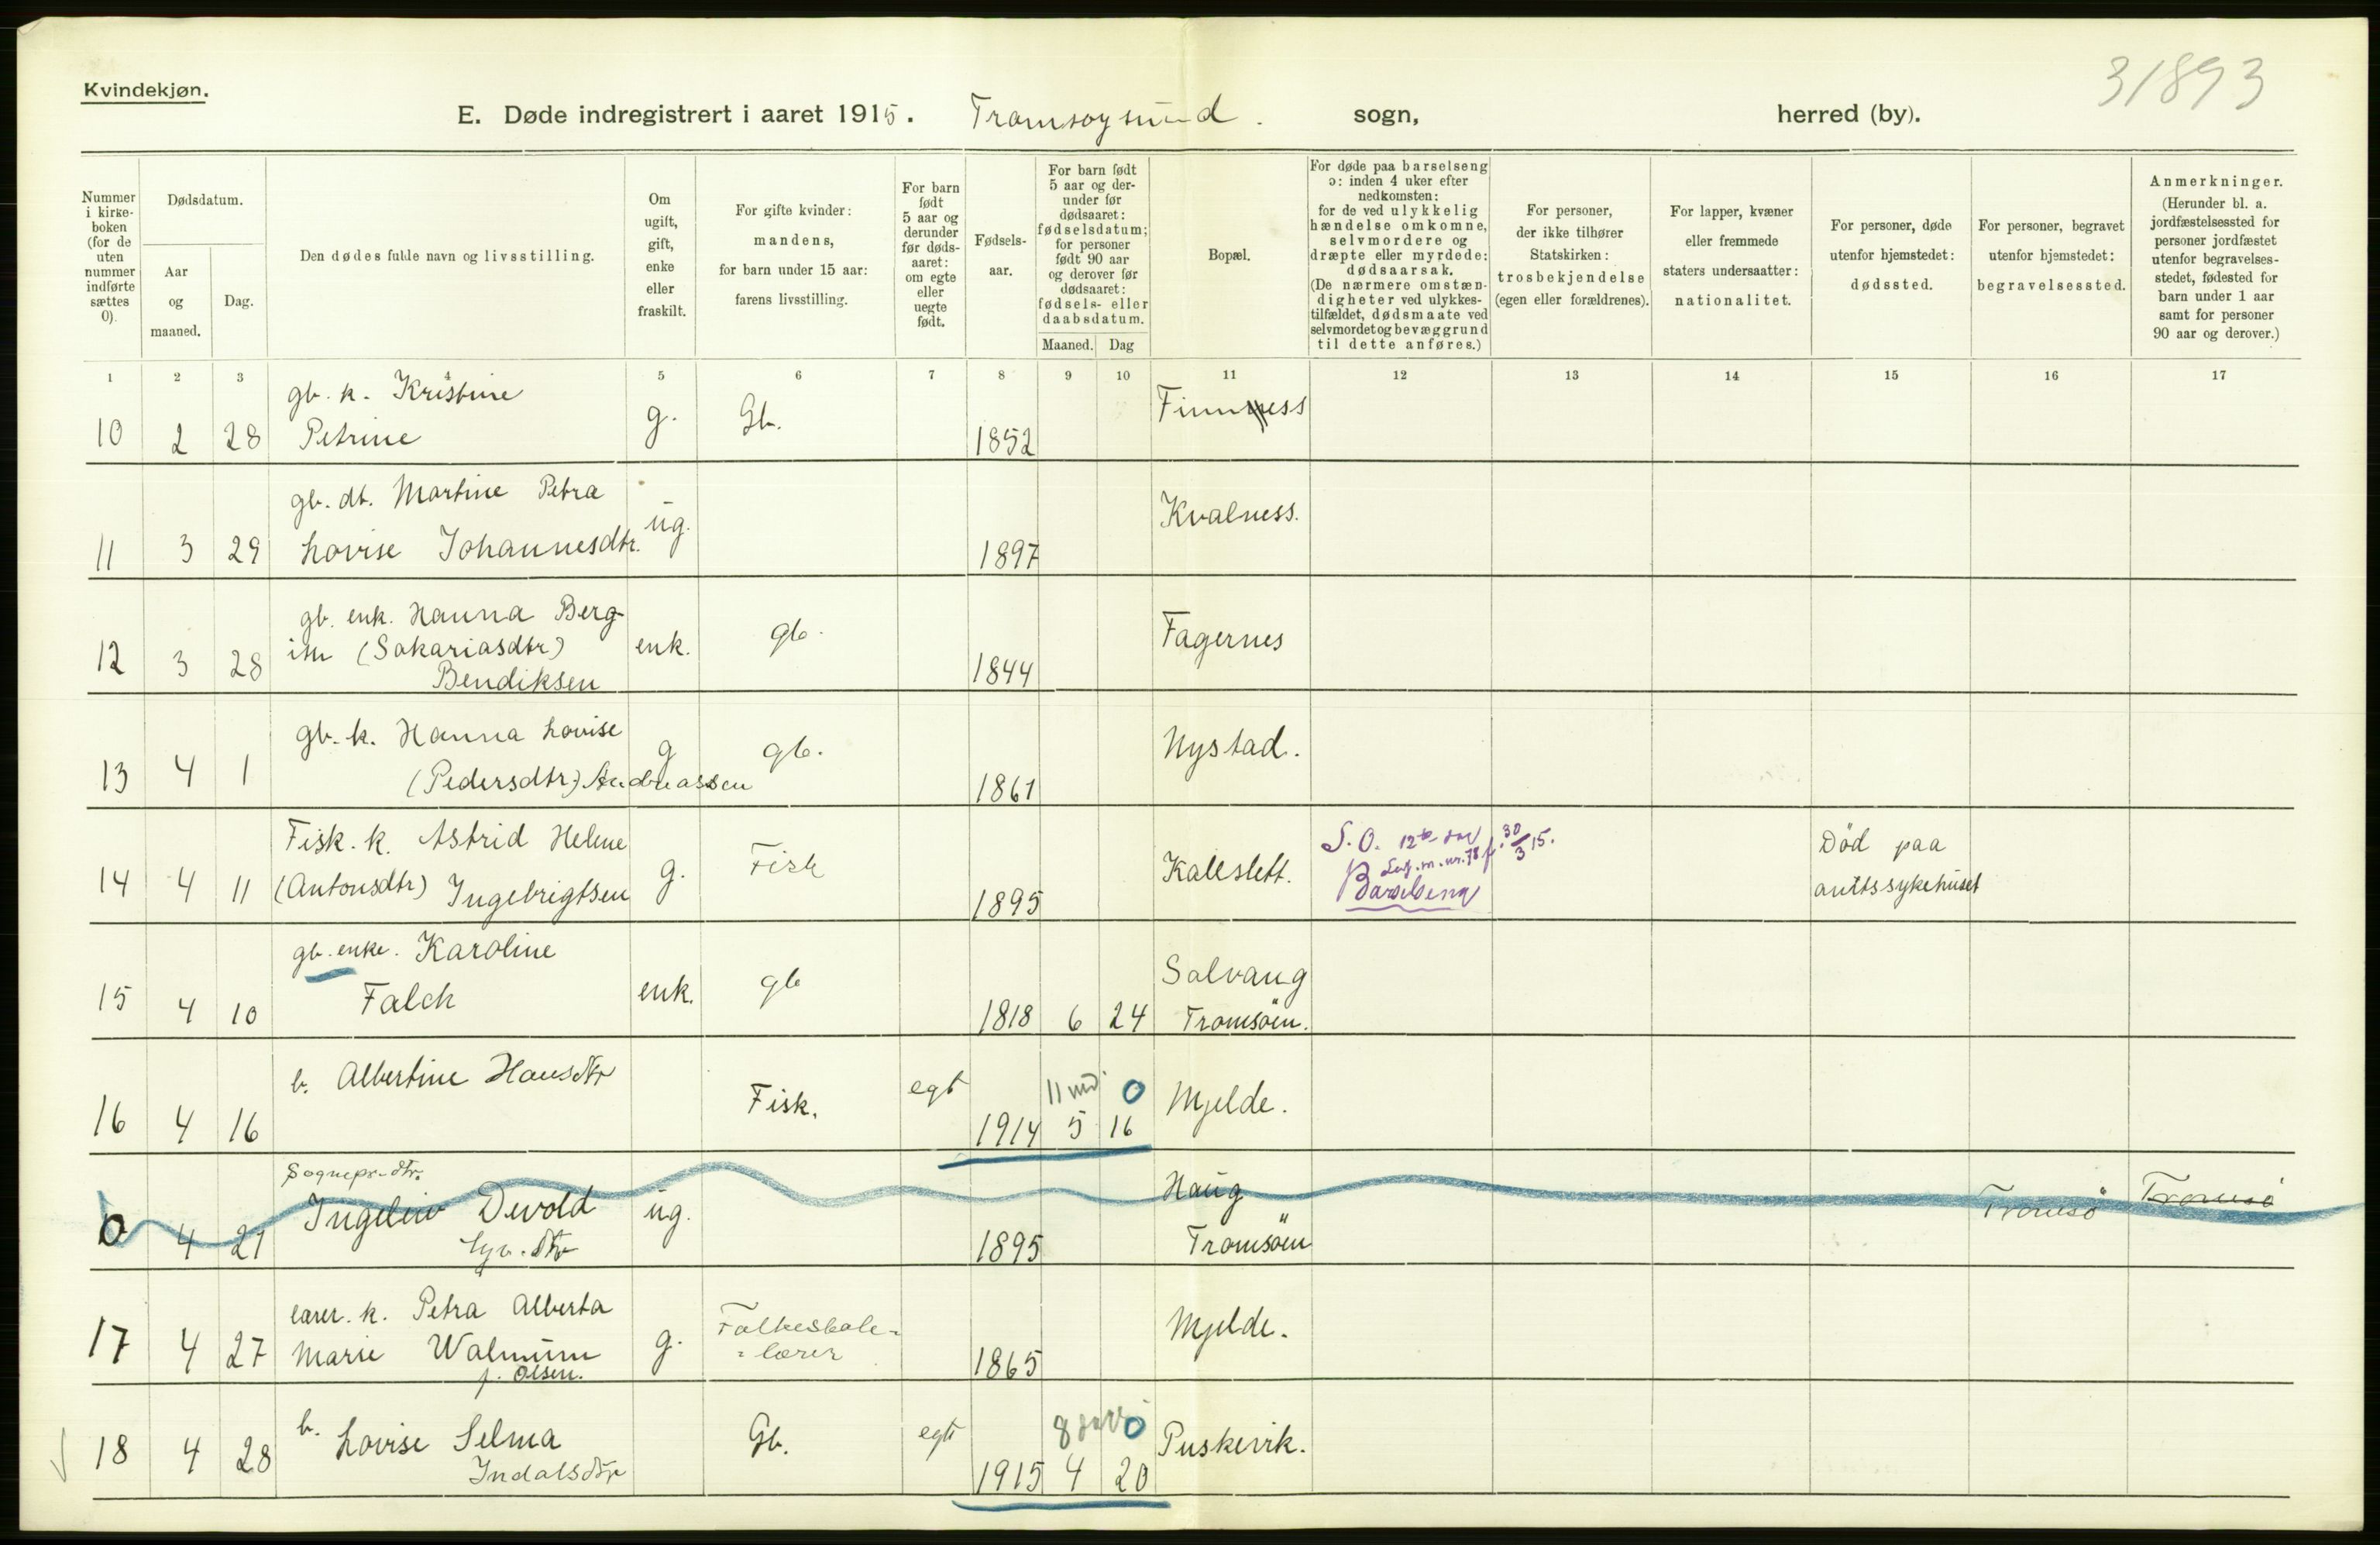 31893
Kvindekjøn.
E. Døde indregistrert i aaret 1915. Tromsøysund. sogn, herred (by).
Nummer i kirke-boken (for de uten nummer indførte sættes 0).
Dødsdatum.
Aar og maaned.
Dag.
Den dødes fulde navn og livsstilling.
Om ugift, gift, enke eller fraskilt.
For gifte kvinder: mandens, for barn under 15 aar: farens livsstilling.
For barn født 5 aar og derunder før døds-aaret: om egte eller uegte født.
Fødsels-aar.
For barn født 5 aar og der-under før dødsaaret: fødselsdatum; for personer født 90 aar og derover før dødsaaret: fødsels- eller daabsdatum.
Maaned. Dag
Bopæl.
For døde paa barselseng ɔ: inden 4 uker efter nedkomsten: for de ved ulykkelig hændelse omkomne, selvmordere og dræpte eller myrdede: dødsaarsak. (De nærmere omstæn-digheter ved ulykkes-tilfældet, dødsmaate ved selvmordet og bevæggrund til dette anføres.)
For personer, der ikke tilhører Statskirken: trosbekjendelse (egen eller forældrenes).
For lapper, kvæner eller fremmede staters undersaatter: nationalitet.
For personer, døde utenfor hjemstedet: dødssted.
For personer, begravet utenfor hjemstedet: begravelsessted.
Anmerkninger. (Herunder bl. a. jordfæstelsessted for personer jordfæstet utenfor begravelses-stedet, fødested for barn under 1 aar samt for personer 90 aar og derover.)
1 2 3 4 5 6 7 8 9 10 11 12 13 14 15 16 17
gb. k. Kristine
10 2 28 Petrine g. Gb. 1852 Finnness
gb. dt. Martine Petra
11 3 29 Lovise Johannesdtr. ug. 1897 Kvalness.
gb. enk. Hanna Berg-
12 3 28 itte (Sakariasdtr) enk. gb. 1844 Fagernes
Bendiksen
gb. k. Hanna Lovise
13 4 1 (Pedersdtr) Andreassen g gb. 1861 Nystad.
Fisk. k. Astrid Helene
14 4 11 (Antonsdtr) Ingebrigtsen g. Fisk 1895 Kaleslett.
S.O. 12te
m. nr. 78 f. 30/3 15.
Barselseng
Död paa
amtssykehuset
gb. enke. Karoline
15 4 10 Falck enk. gb 1818 6 24 Solvang
Tromsöen.
b. Albertine Hansdtr
16 4 16 Fisk. egt 1914 5 16 Mjelde.
11 md. 0
Sognepr. dtr.
0 4 21 Ingeliv Devold ug. 1895 Haug
Tromsöen Tromsö Tromsö
lærer. k. Petra Alberta
17 4 27 Marie Walnum g. Folkeskole-
=lærer 1865 Mjelde.
f. Olsen.
b.
18 4 28 Lovise Selma Gb. egt 1915 4 20 Puskevik.
8 0
Indalsdtr